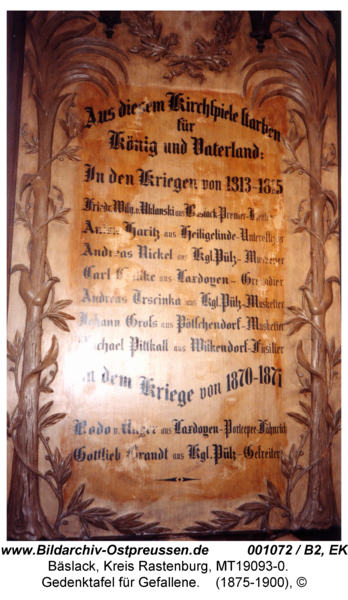 Aus diesem Kirchspiele starben
für
König und Vaterland:
In den Kriegen von 1813-1815
Friedr. Wilh. v. Uklanski aus Baeslack Premier-
Haritz aus Heiligelinde-
Andreas Nickel aus Kgl. Pülz-
Carl aus Laxdoyen-
Andreas Trscinka aus Kgl. Pülz-Musketier
Johann Groß aus Pötschendorf-Musketier
Michael Pittkall aus Wilkendorf-Füsilier
In dem Kriege von 1870-1871
Bodo v. Unger aus Laxdoyen-Portepee-Fähnrich
Gottlieb Brandt aus Kgl. Pülz-Gefreiter
www.Bildarchiv-Ostpreussen.de 001072 / B2, EK
Bäslack, Kreis Rastenburg, MT19093-0.
Gedenktafel für Gefallene. (1875-1900), ©